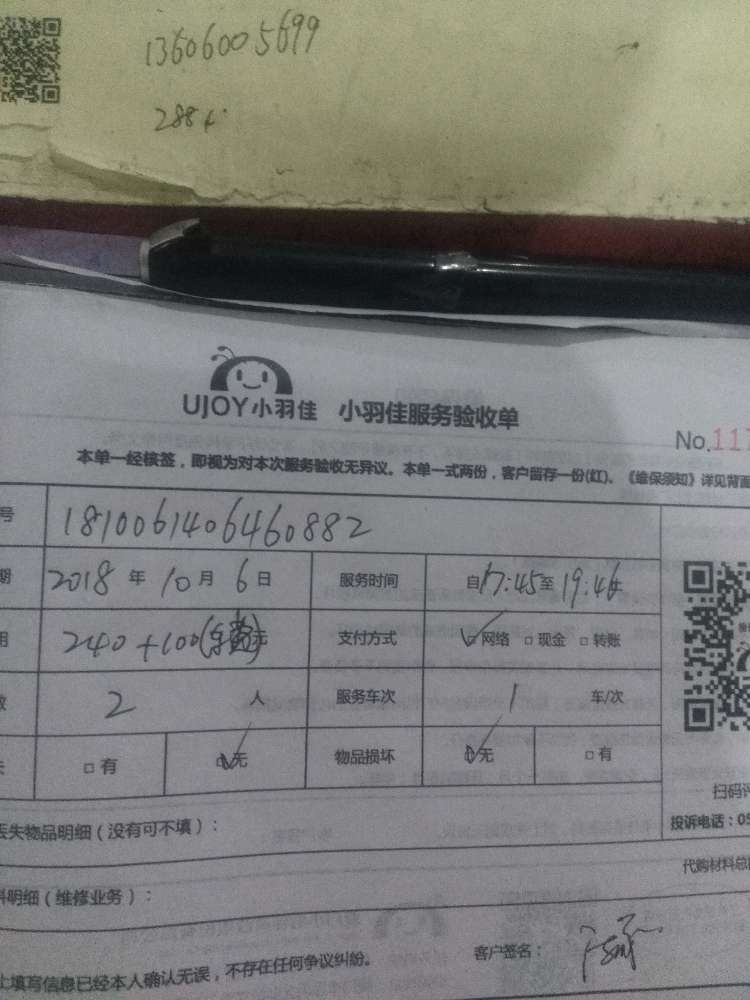 13606005699
288
UJOY小羽佳 小羽佳服务验收单
No.117
本单一经核签，即视为对本次服务验收无异议。本单一式两份，客户留存一份(红)。《维保须知》详见背面
号 1810061406460882
期 2018 年 10 月 6 日 服务时间 自 17:45 至 19:46
用 240+100(车费)元 支付方式 ☑网络 □现金 □转账
数 2 人 服务车次 1 车/次
失 □有 ☑无 物品损坏 ☑无 □有
扫码评
丢失物品明细（没有可不填）： 投诉电话：05
代购材料总
料明细（维修业务）：
客户签名：
上填写信息已经本人确认无误，不存在任何争议纠纷。